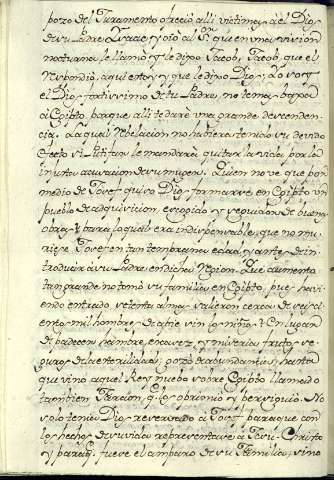 pozo del Juramento ofreció alli victimas á el Dios
de su Padre Isaac, y oió al Sr. que en una vision
noturna le llamò, y le dixo Jacob, Jacob, que el
respondiò, aqui estoy, y que le dixo Dios, Yo soy
el Dios fortissimo de tu Padre, no temas, baxa
à Egipto, porque alli te darè una grande descenden-
cia. à la qual Revelacion no hubiera tenido su devido
efecto si Putifar le mandara quitar la vida, por la
injusta acusacion de su muger. Quien no ve que por
medio de Josef quiso Dios formarse en Egipto un
pueblo de adquisicion, escogido, y seguidor de buenas
obras? para lo qual era indispensable, que no mu-
riese Josef en tan temprana edad, y antes de in-
troducir à su Padre en dicha Region. Que aumento
tan grande no tomò su familia en Egipto, pues havi-
endo entrado setenta almas salieron cerca de seis ci-
entos mil hombres de à pie sin los niños? En lugar
de padecer hambre, escasez, y miserias, frutos se-
guros de la esterilidad, gozò de abundancias, hasta
que vino aquel Rey nuebo sobre Egipto llamado
tambien Faraon, q. los oprimiò y persiguiò. No
solo tenia Dios reservado à Josef para que con
los hechos de su vida representase à Jesu-Christo
y para q. fuese el amparo de su Familia, sino